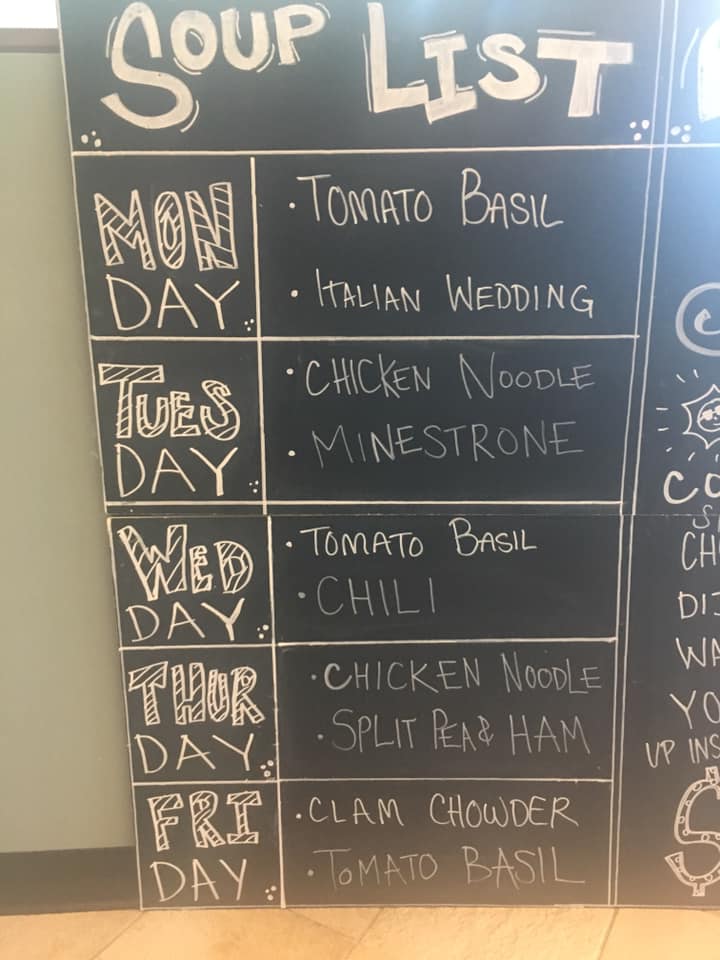 SOUP LIST
MON
DAY
• TOMATO BASIL
• ITALIAN WEDDING
TUES
DAY
• CHICKEN NOODLE
• MINESTRONE
WED
DAY
• TOMATO BASIL
• CHILI
THUR
DAY
• CHICKEN NOODLE
• SPLIT PEA & HAM
FRI
DAY
• CLAM CHOWDER
• TOMATO BASIL
UP
$